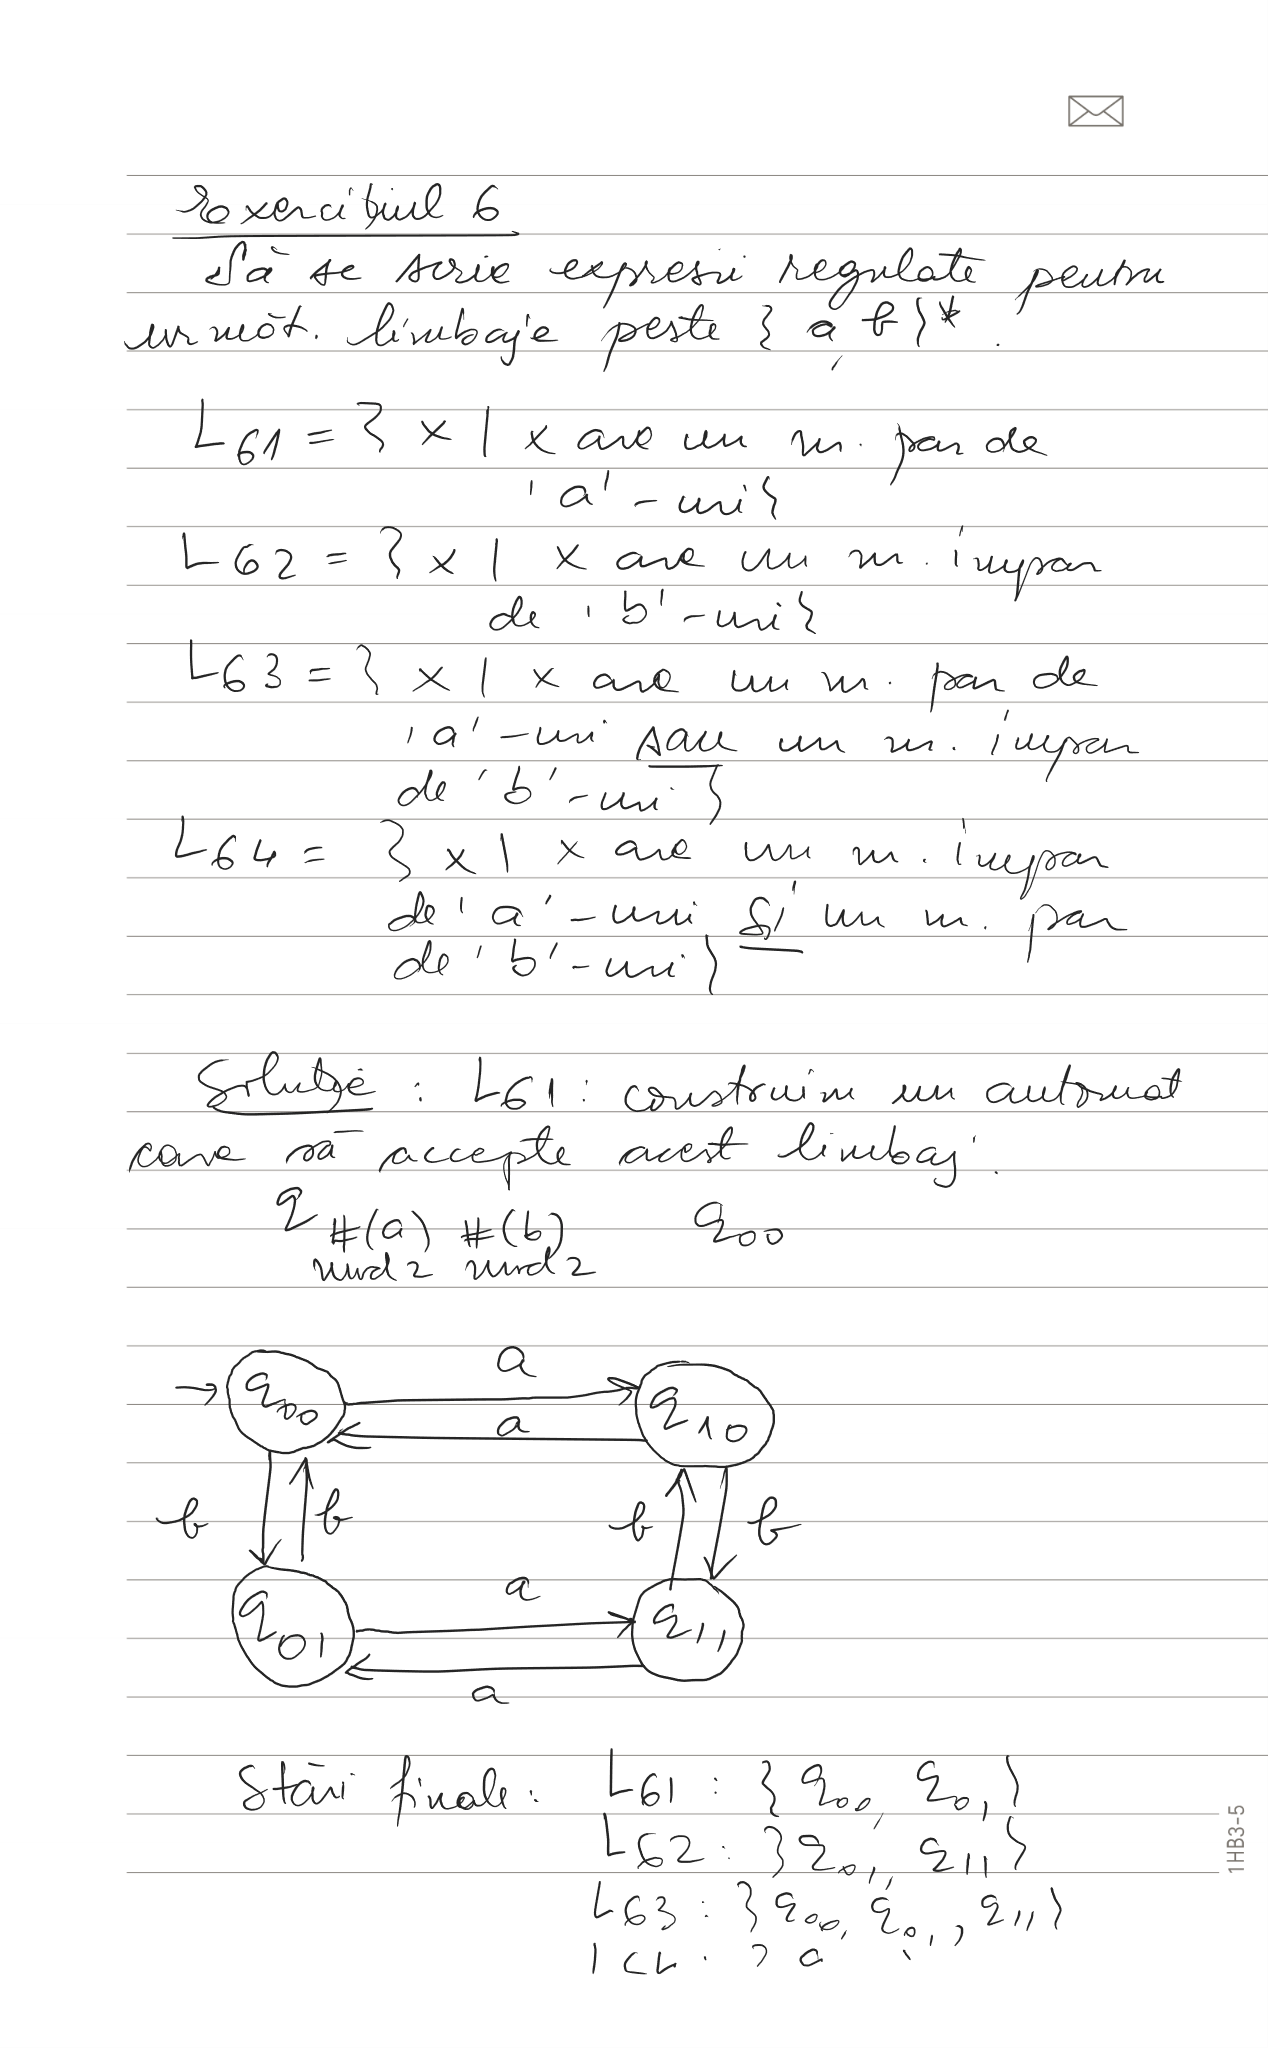 Exercițiul 6
Să se scrie expresii regulate pentru
următ. limbaje peste {a, b}*.
L61 = { x | x are un nr. par de
'a'-uri}
L62 = { x | x are un nr. impar
de 'b'-uri}
L63 = { x | x are un nr. par de
'a'-uri sau un nr. impar
de 'b'-uri}
L64 = { x | x are un nr. impar
de 'a'-uri și un nr. par
de 'b'-uri}
Soluție : L61 : construim un automat
care să accepte acest limbaj.
q #(a) #(b) q00
mod 2 mod 2
a
q00 q10
a
b b b b
a
q01 q11
a
Stări finale: L61 : {q00, q01}
L62 : {q01, q11}
L63 : {q00, q01, q11}
1HB3-5